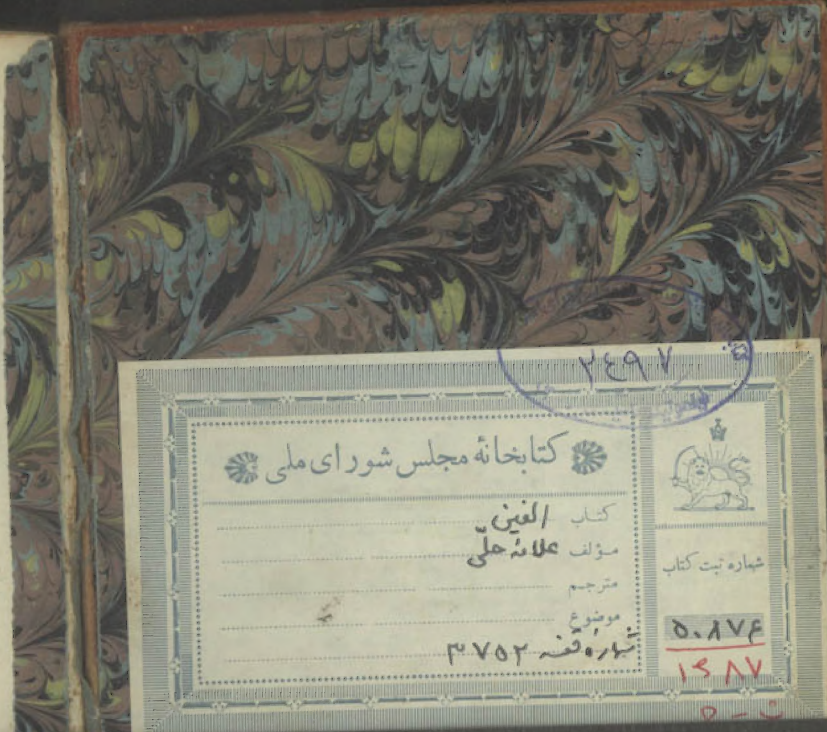 ۲۴۹۷
کتابخانهٔ مجلس شورای ملی
کتاب الفین
مؤلف علامه حلّی
مترجم
موضوع
شماره قفسه ۳۷۵۲
شماره ثبت کتاب
۵۰۸۷۶